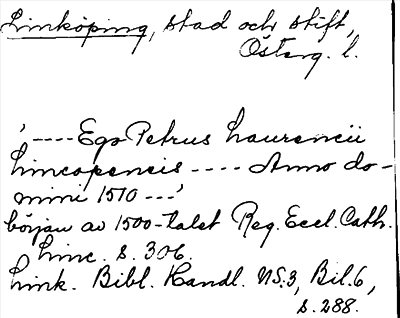 Linköping, stad och stift,
Österg. l.
'----Ego Petrus Laurencii
Lincopencis ---- Anno do-
mini 1510 ---'
början av 1500-talet Reg. Eccl. Cath.
Linc. s. 306.
Link. Bibl. Handl. NS.3, Bil.6,
s.288.